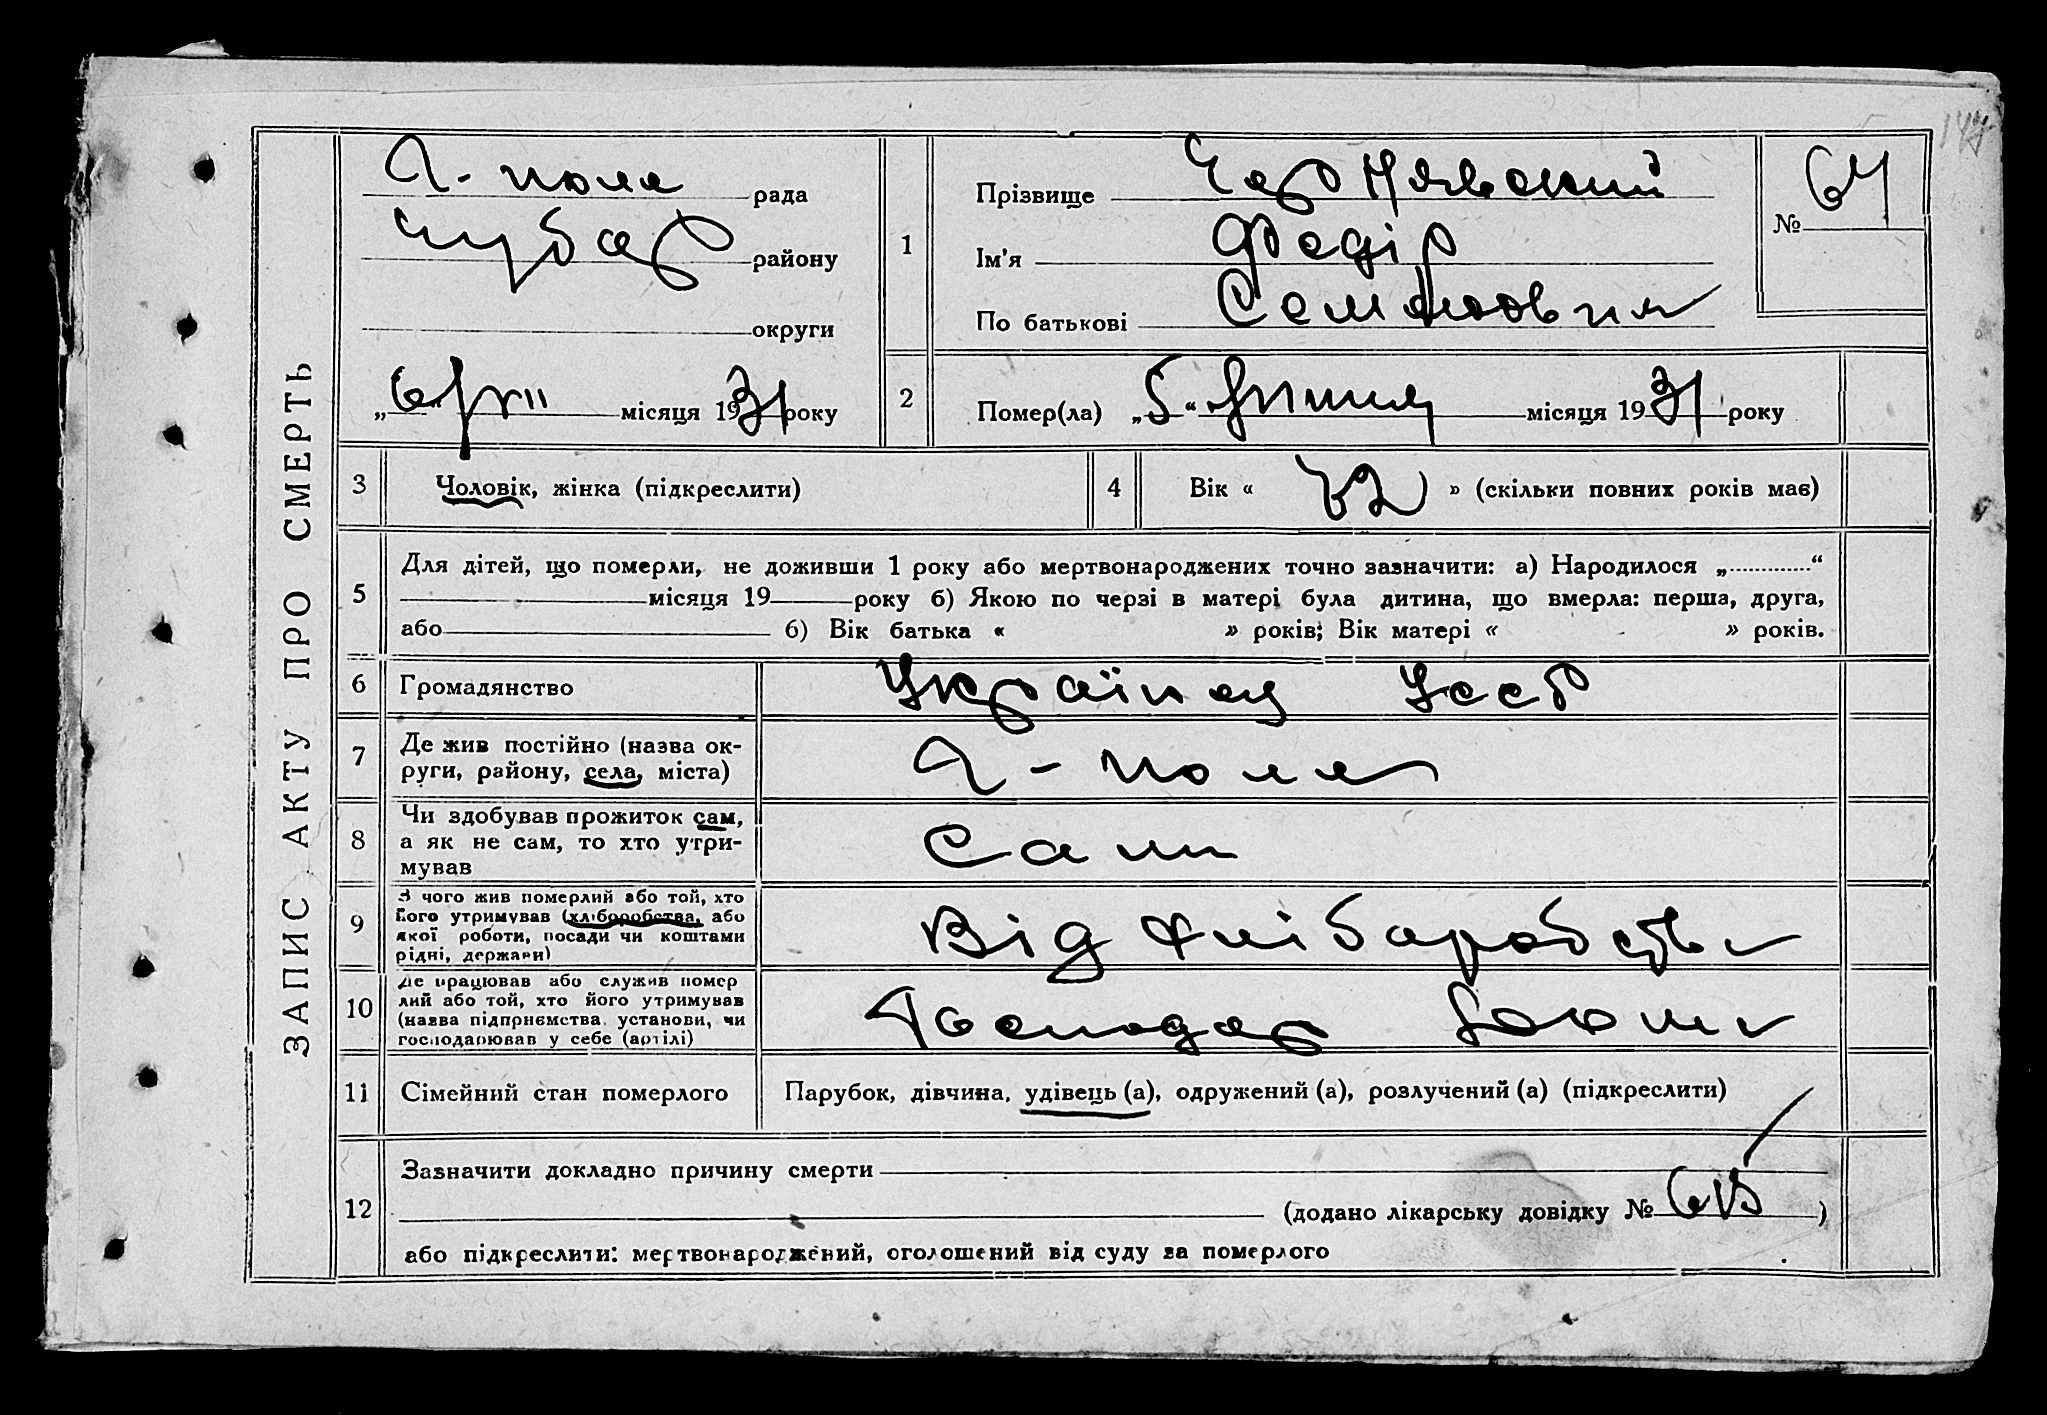 147
ЗАПИС АКТУ ПРО СМЕРТЬ
рада
Чубар району
округи
„6“ місяця 1931 року
1
Прізвище
Ім'я Федір
По батькові Семенович
№ 64
2
Помер(ла) „5“ місяця 1931 року
3
Чоловік, жінка (підкреслити)
4
Вік « 72 » (скільки повних років має)
5
Для дітей, що померли, не доживши 1 року або мертвонароджених точно зазначити: а) Народилося „ “
місяця 19 року б) Якою по черзі в матері була дитина, що вмерла: перша, друга,
або б) Вік батька « » років; Вік матері « » років.
6
Громадянство
Українец Усср
7
Де жив постійно (назва ок-
руги, району, села, міста)
8
Чи здобував прожиток сам,
а як не сам, то хто утри-
мував
Сам
9
З чого жив померлий або той, хто
його утримував (хліборобства, або
якої роботи, посади чи коштами
рідні, держави)
Від хліборобства
10
Де працював або служив помер
лий або той, хто його утримував
(назва підприємства, установи, чи
господарював у себе (артілі)
Господар
11
Сімейний стан померлого
Парубок, дівчина, удівець (а), одружений (а), розлучений (а) (підкреслити)
12
Зазначити докладно причину смерти
(додано лікарську довідку № )
або підкреслити: мертвонароджений, оголошений від суду за померлого